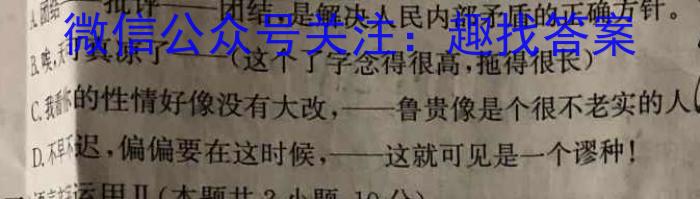 A.团结——批评——团结,是解决人民内部矛盾的正确方针。
微信公众号关注：趣找答案
B.唉,天可真凉了——(这个了字念得很高,拖得很长)
C.我看你的性情好像没有大改,——鲁贵像是个很不老实的人
D.不早不迟,偏偏要在这时候,——这就可见是一个谬种!
运用Ⅱ(本题共2小题,10分)